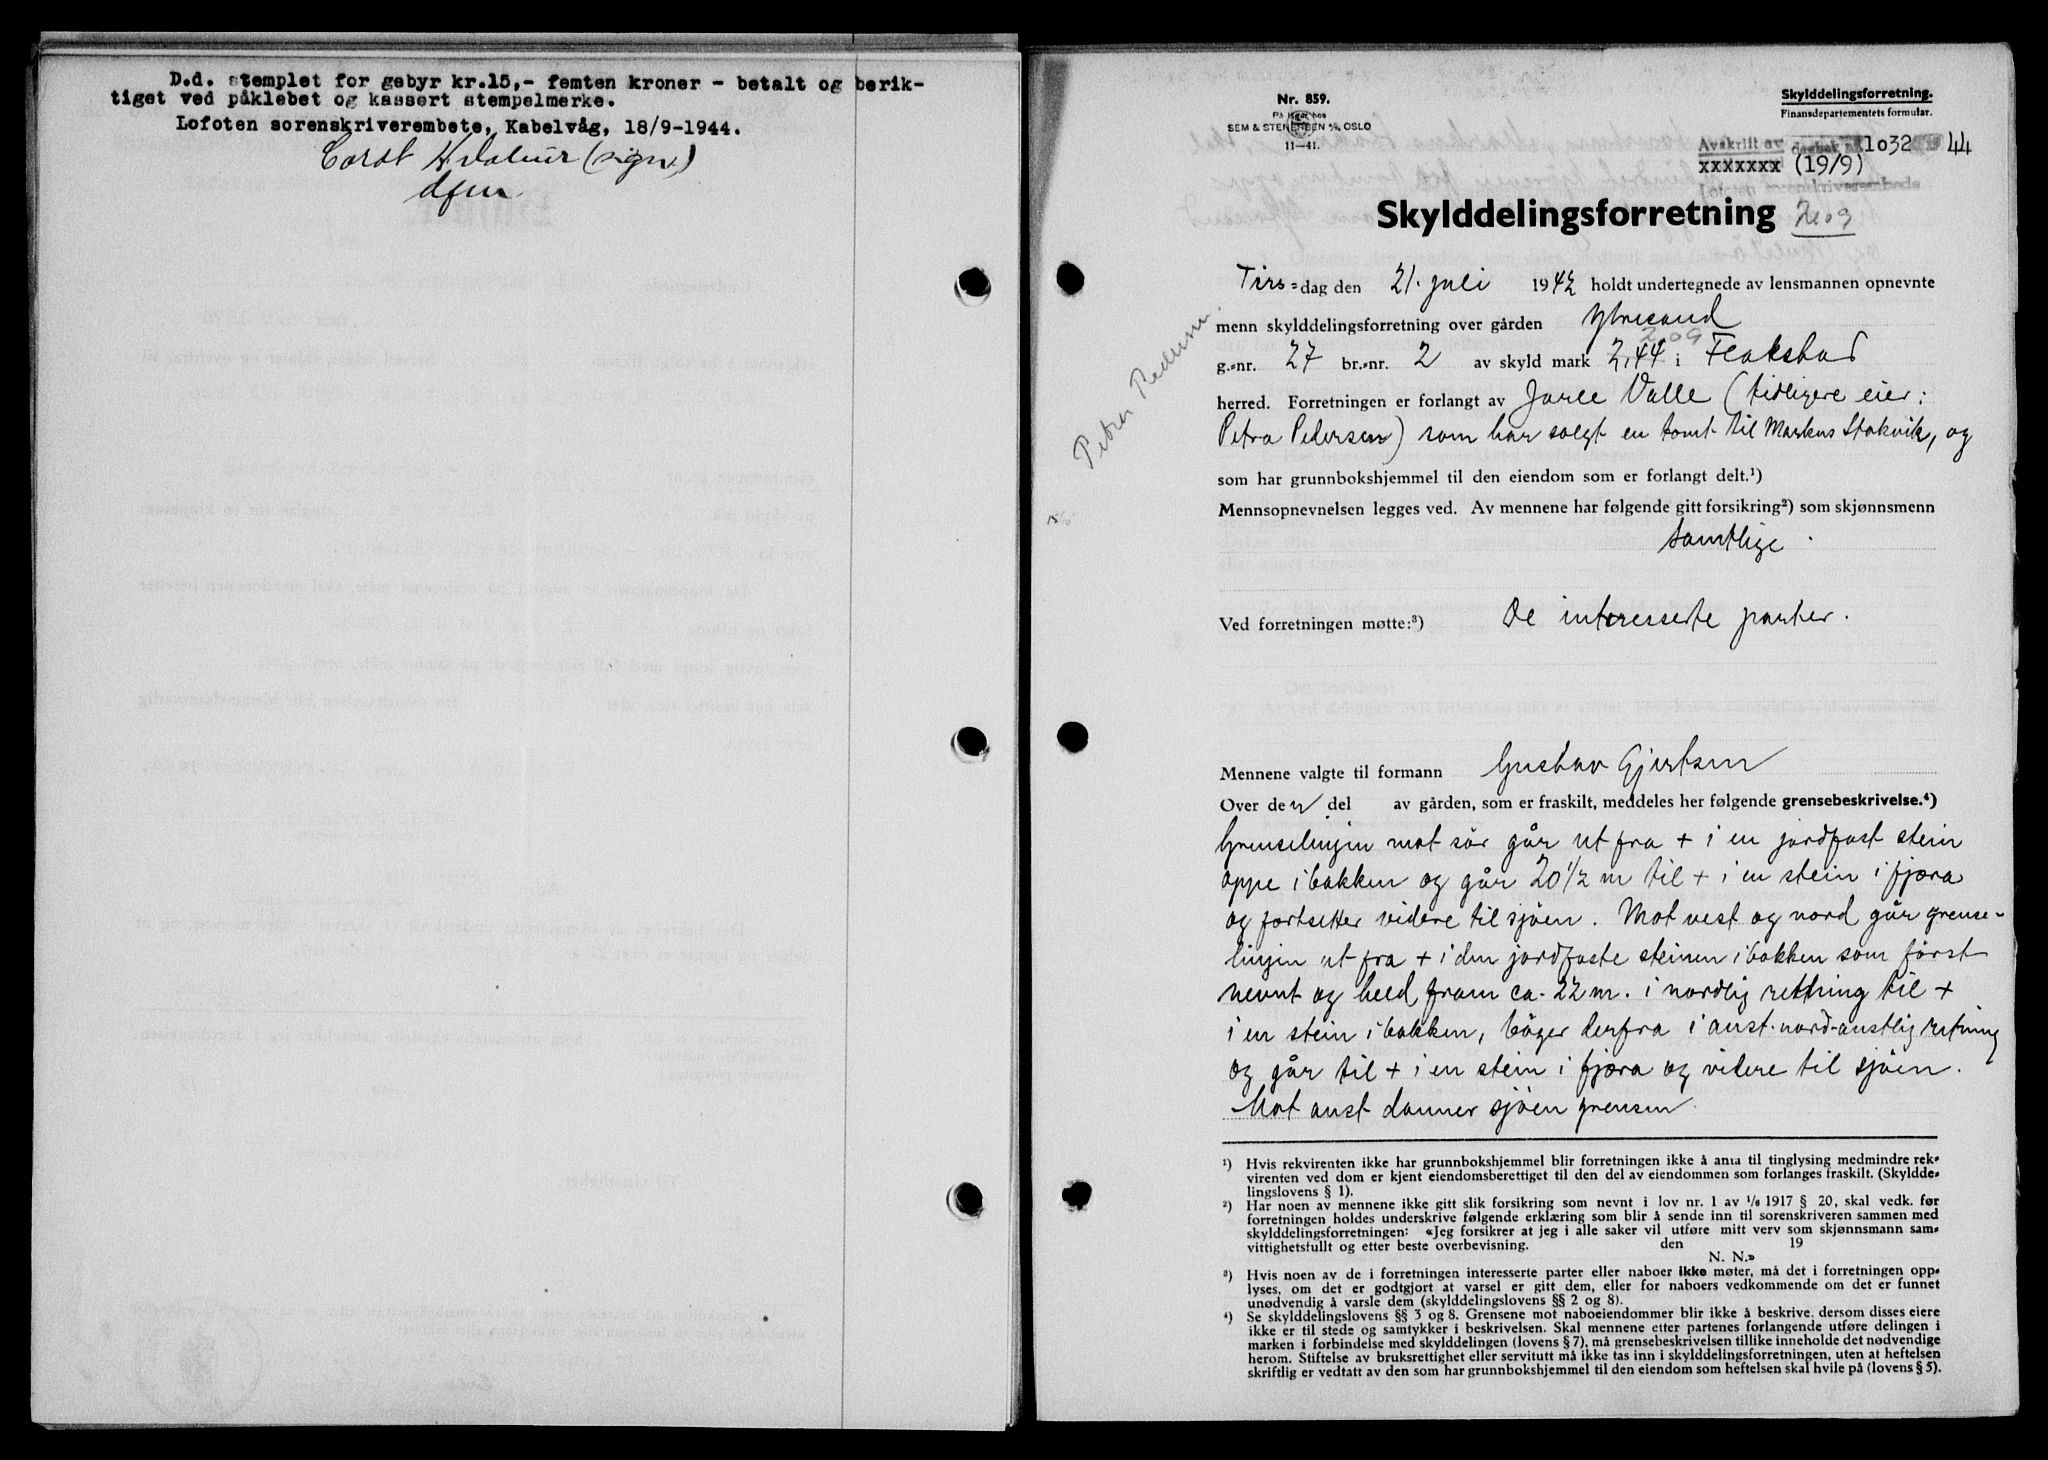 D.d. stemplet for gebyr kr.15,- femten kroner - betalt og berik-
tiget ved påklebet og kassert stempelmerke.
Lofoten sorenskriverembete, Kabelvåg, 18/9-1944.
(sign.)
dfm
Nr. 859.
På lager hos
SEM & STENERSEN A/S, OSLO
11-41.
Skylddelingsforretning.
Finansdepartementets formular.
Avskrift av dagbok nr. 1032 1944
xxxxxxx (19/9)
Lofoten sorenskriverembede
Skylddelingsforretning
Tirs=dag den 21. juli 1942 holdt undertegnede av lensmannen opnevnte
menn skylddelingsforretning over gården Ytresand
2,09
g.=nr. 27 br.=nr. 2 av skyld mark 2,44 i Flakstad
herred. Forretningen er forlangt av Jarle Valle (tidligere eier:
Petra Pedersen) som har solgt en tomt til Markus Stokvik, og
som har grunnbokshjemmel til den eiendom som er forlangt delt.¹)
Petra Pedersen.
Mennsopnevnelsen legges ved. Av mennene har følgende gitt forsikring²) som skjønnsmenn
samtlige.
Ved forretningen møtte:³) De interesserte parter.
Mennene valgte til formann Gustav Gjertsen
Over den del av gården, som er fraskilt, meddeles her følgende grensebeskrivelse.⁴)
Grenselinjen mot sör går ut fra + i en jordfast stein
oppe i bakken og går 20 1/2 m til + i en stein i fjæra
og fortsetter videre til sjöen. Mot vest og nord går grense-
linjen ut fra + i den jordfaste steinen i bakken som först
nevnt og held fram ca. 22 m. i nordlig rettning til +
i en stein i bakken, böger derfra i aust-nord-austlig retning
og går til + i en stein i fjæra og videre til sjöen.
Mot aust danner sjöen grensen.
¹) Hvis rekvirenten ikke har grunnbokshjemmel blir forretningen ikke å anta til tinglysing medmindre rek=
virenten ved dom er kjent eiendomsberettiget til den del av eiendommen som forlanges fraskilt. (Skyldde=
lingslovens § 1).
²) Har noen av mennene ikke gitt slik forsikring som nevnt i lov nr. 1 av 1/6 1917 § 20, skal vedk. før
forretningen holdes underskrive følgende erklæring som blir å sende inn til sorenskriveren sammen med
skylddelingsforretningen: «Jeg forsikrer at jeg i alle saker vil utføre mitt verv som skjønnsmann sam=
vittighetsfullt og etter beste overbevisning. den 19
N. N.»
³) Hvis noen av de i forretningen interesserte parter eller naboer ikke møter, må det i forretningen opp=
lyses, om det er godtgjort at varsel er gitt dem, eller for naboers vedkommende om det er funnet
unødvendig å varsle dem (skylddelingslovens §§ 2 og 8).
⁴) Se skylddelingslovens §§ 3 og 8. Grensene mot naboeiendommer blir ikke å beskrive, dersom disses eiere
ikke er til stede og samtykker i beskrivelsen. Skal mennene etter partenes forlangende utføre delingen i
marken i forbindelse med skylddelingen (lovens § 7), må grensebeskrivelsen tillike inneholde det nødvendige
herom. Stiftelse av bruksrettighet eller servitutt må ikke tas inn i skylddelingsforretningen, uten at heftelsen
skriftlig er vedtatt av den som har grunnbokshjemmel til den eiendom som heftelsen skal hvile på (lovens § 5).